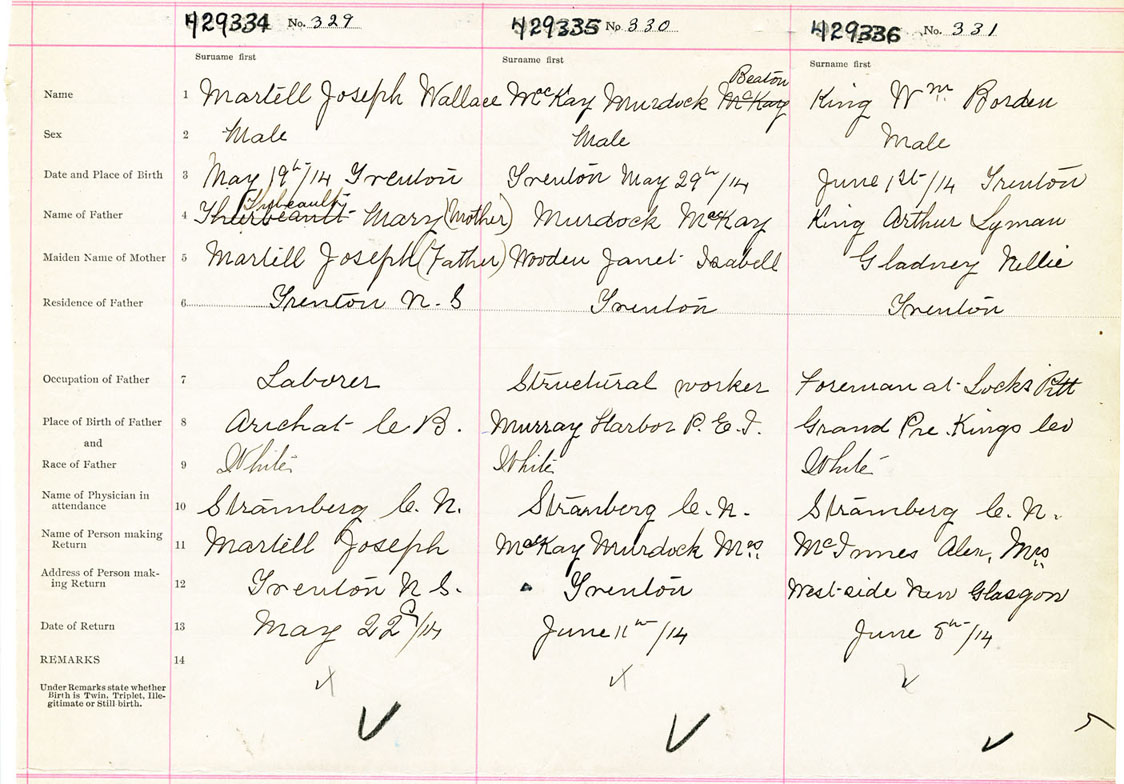 429334 No. 329 429335 No 330 429336 No. 331
Surname first Surname first Surname first
Beaton
Name 1 Martell Joseph Wallace McKay Murdock McKay King Wm Borden
Sex 2 Male Male Male
Date and Place of Birth 3 May 19th/14 Trenton Trenton May 29th/14 June 1st/14 Trenton
Name of Father 4 Mary (Mother) Murdock McKay King Arthur Lyman
Maiden Name of Mother 5 Martell Joseph (Father) Wooden Janet Isabell Gladney Nellie
Residence of Father 6 Trenton N. S Trenton Trenton
Occupation of Father 7 Laborer Structural worker Foreman at Locks Pitt
Place of Birth of Father 8 Arichat C B. Murray Harbor P. E. I. Grand Pre Kings Co
and
Race of Father 9 White White White
Name of Physician in
attendance 10 Stramberg C. N. Stramberg C. N. Stramberg C. N.
Name of Person making
Return 11 Martell Joseph MacKay Murdock Mrs McInnes Alex, Mrs
Address of Person mak-
ing Return 12 Trenton N S. Trenton West-side New Glasgow
Date of Return 13 May 22d/14 June 11th/14 June 8th/14
REMARKS 14
Under Remarks state whether
Birth is Twin, Triplet, Ille-
gitimate or Still birth.